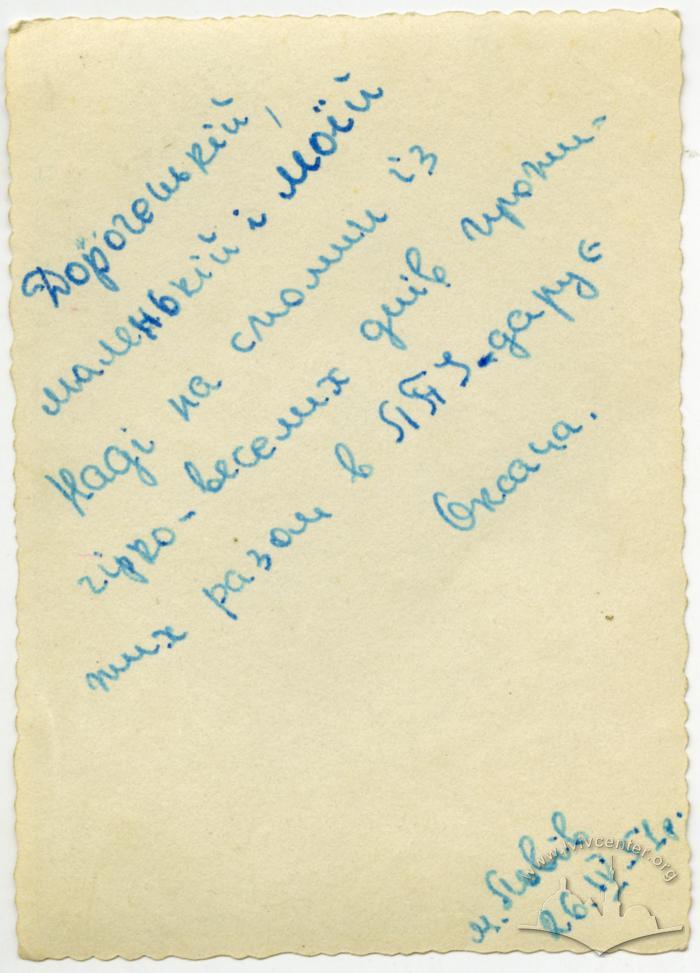 Дорогенькій,
маленькій і моїй
Наді на спомин із
гірко-веселих днів прожи-
тих разом в дарує
Оксана.
м. Львів
26. IV.
www.lvivcenter.org